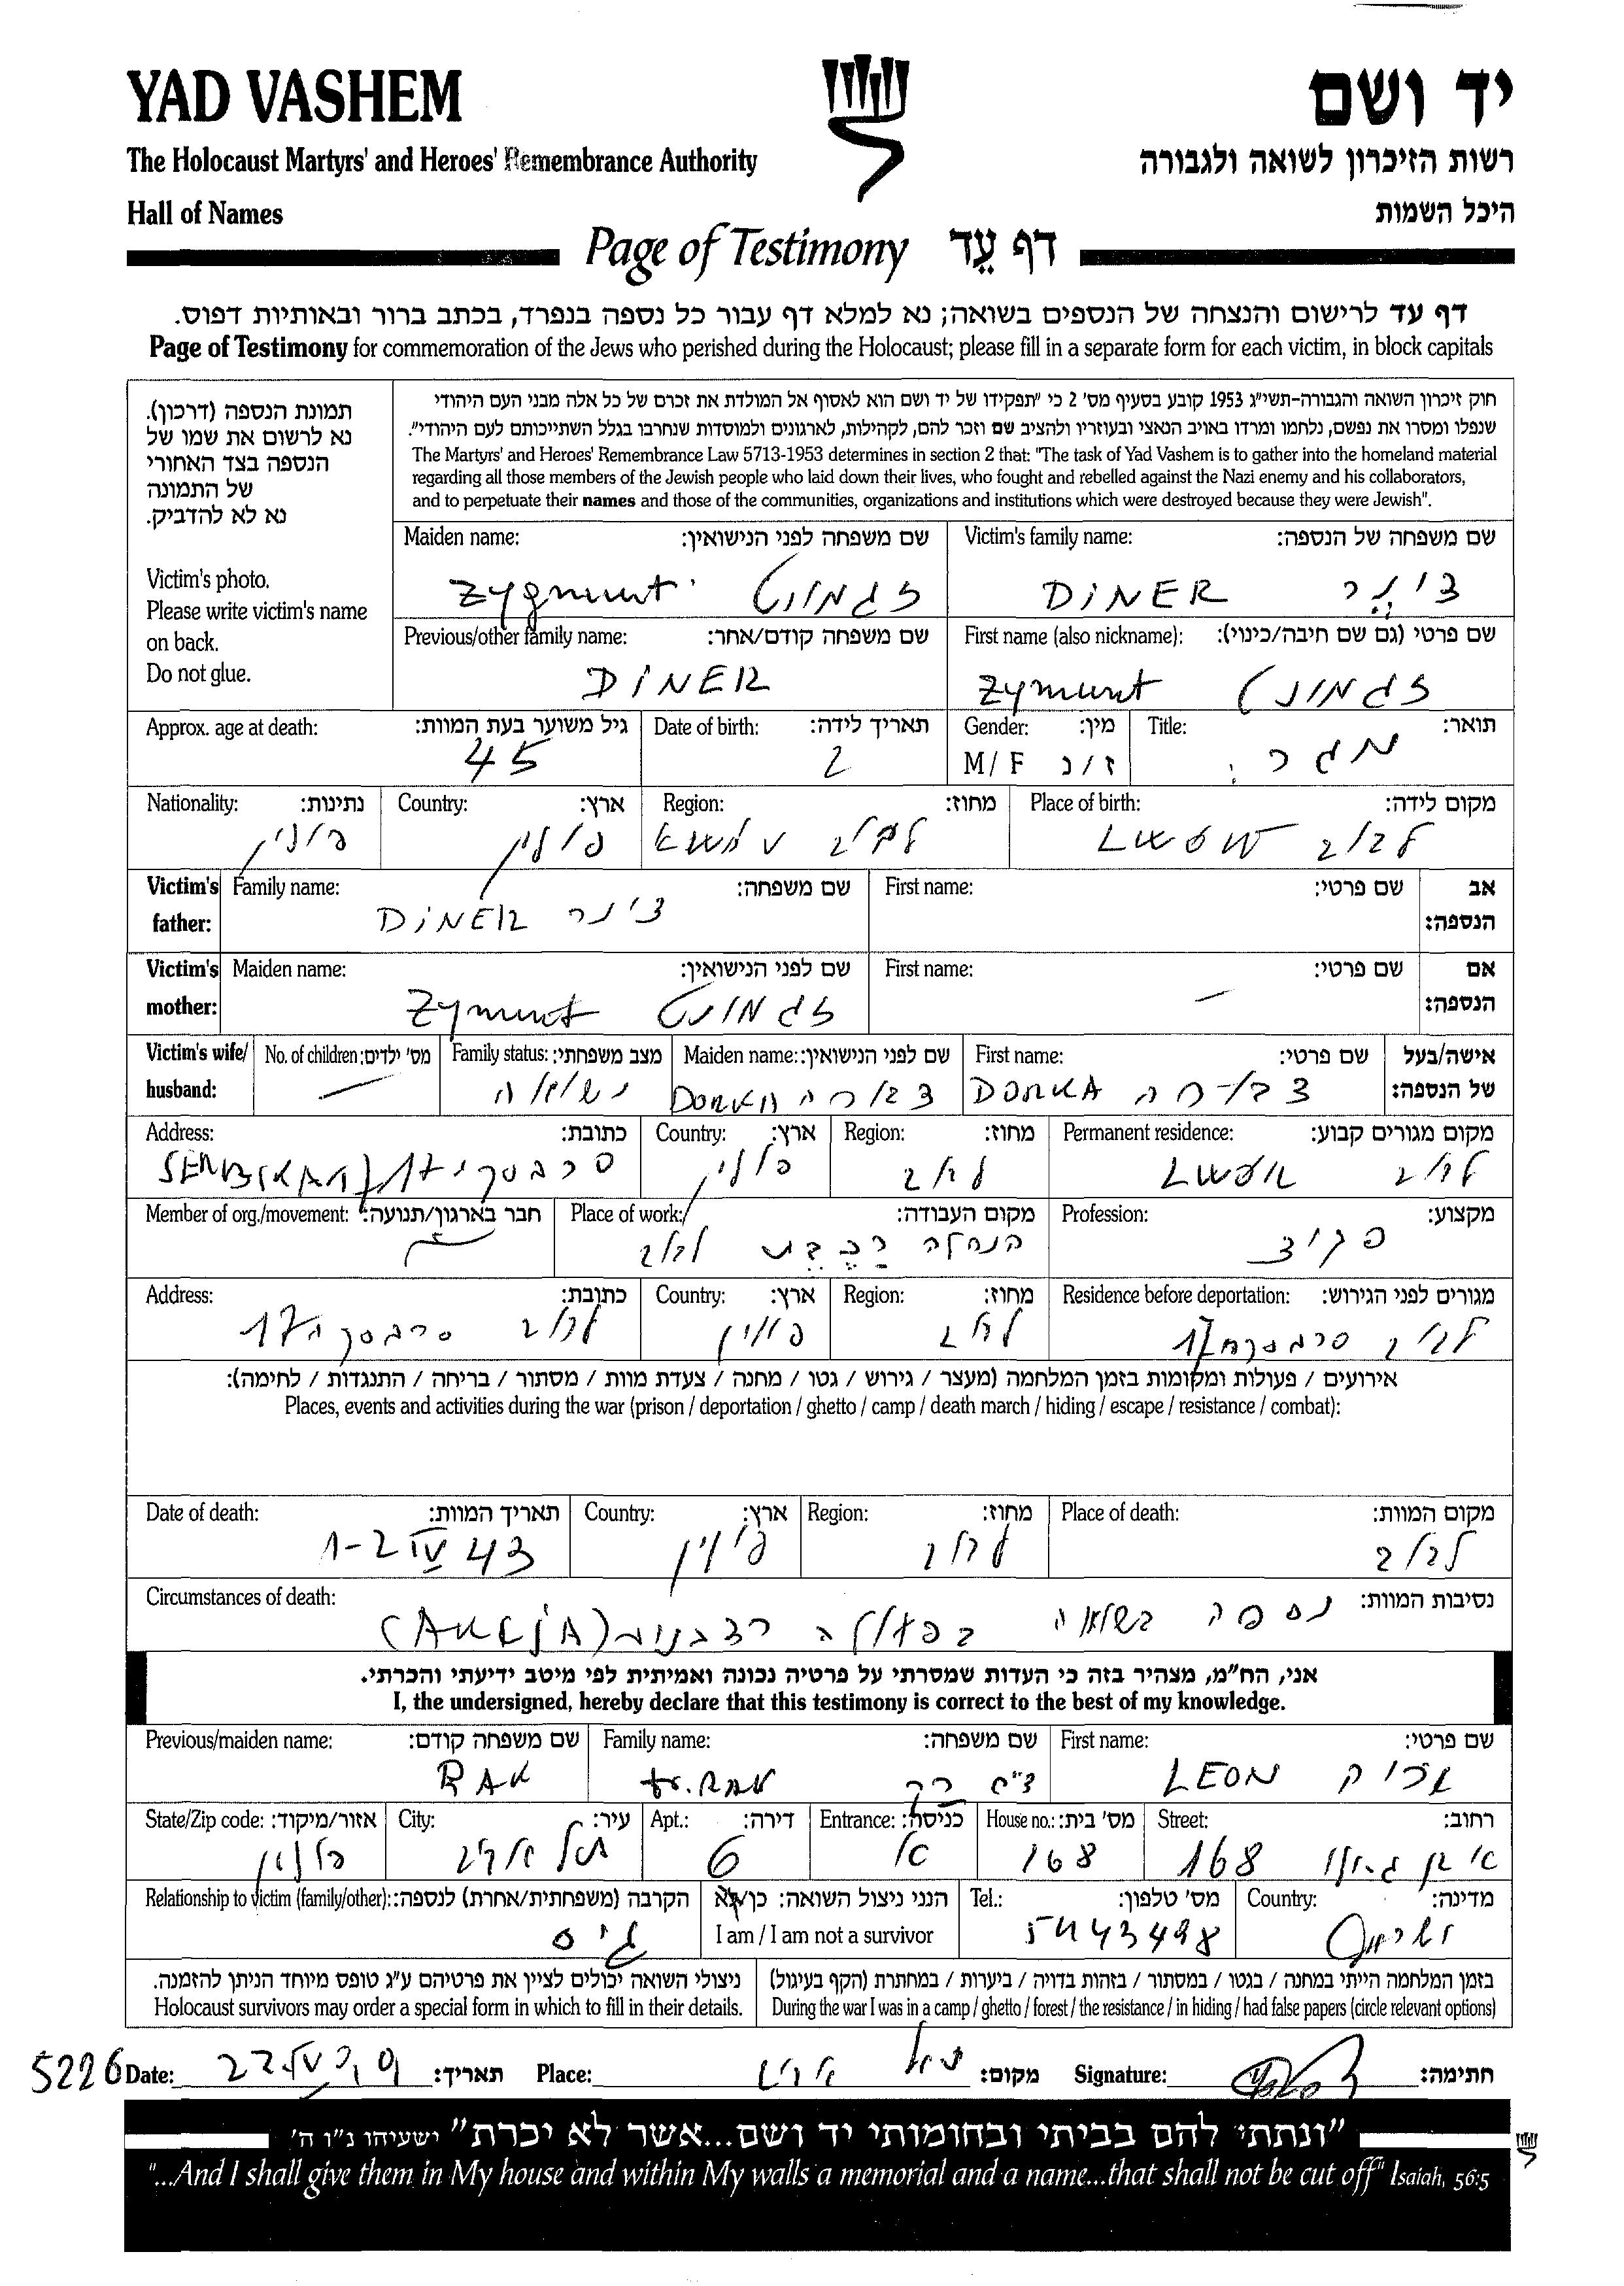 YAD VASHEM
יד ושם
The Holocaust Martyrs' and Heroes' Remembrance Authority
רשות הזיכרון לשואה ולגבורה
Hall of Names
היכל השמות
Page of Testimony דף עֵד
דף עד לרישום והנצחה של הנספים בשואה; נא למלא דף עבור כל נספה בנפרד, בכתב ברור ובאותיות דפוס.
Page of Testimony for commemoration of the Jews who perished during the Holocaust; please fill in a separate form for each victim, in block capitals
תמונת הנספה (דרכון).
נא לרשום את שמו של
הנספה בצד האחורי
של התמונה
נא לא להדביק.
Victim's photo.
Please write victim's name
on back.
Do not glue.
חוק זיכרון השואה והגבורה-תשי"ג 1953 קובע בסעיף מס' 2 כי "תפקידו של יד ושם הוא לאסוף אל המולדת את זכרם של כל אלה מבני העם היהודי
שנפלו ומסרו את נפשם, נלחמו ומרדו באויב הנאצי ובעוזריו ולהציב שם וזכר להם, לקהילות, לארגונים ולמוסדות שנחרבו בגלל השתייכותם לעם היהודי".
The Martyrs' and Heroes' Remembrance Law 5713-1953 determines in section 2 that: "The task of Yad Vashem is to gather into the homeland material
regarding all those members of the Jewish people who laid down their lives, who fought and rebelled against the Nazi enemy and his collaborators,
and to perpetuate their names and those of the communities, organizations and institutions which were destroyed because they were Jewish".
Maiden name: שם משפחה לפני הנישואין: Victim's family name: שם משפחה של הנספה:
Zygmunt זגמונט DINER דינר
Previous/other family name: שם משפחה קודם/אחר: First name (also nickname): שם פרטי (גם שם חיבה/כינוי):
DINER Zymunt זגמונט
Approx. age at death: גיל משוער בעת המוות: Date of birth: תאריך לידה: Gender: מין: Title: תואר:
45 M/F ז/נ
Nationality: נתינות: Country: ארץ: Region: מחוז: Place of birth: מקום לידה:
פולין לבוב LWOW לבוב
Victim's father: Family name: שם משפחה: First name: שם פרטי: אב הנספה:
DINER דינר
Victim's mother: Maiden name: שם לפני הנישואין: First name: שם פרטי: אם הנספה:
Zymunt זגמונט –
Victim's wife/husband: No. of children: מס' ילדים: Family status: מצב משפחתי: Maiden name: שם לפני הנישואין: First name: שם פרטי: אישה/בעל של הנספה:
– DORKA דבורה DORKA דבורה
Address: כתובת: Country: ארץ: Region: מחוז: Permanent residence: מקום מגורים קבוע:
17 פולין לבוב לבוב
Member of org./movement: חבר בארגון/תנועה: Place of work: מקום העבודה: Profession: מקצוע:
הנהלה לבוב פקיד
Address: כתובת: Country: ארץ: Region: מחוז: Residence before deportation: מגורים לפני הגירוש:
לבוב סרבסקה 17 פולין לבוב לבוב סרבסקה 17
אירועים / פעולות ומקומות בזמן המלחמה (מעצר / גירוש / גטו / מחנה / צעדת מוות / מסתור / בריחה / התנגדות / לחימה):
Places, events and activities during the war (prison / deportation / ghetto / camp / death march / hiding / escape / resistance / combat):
Date of death: תאריך המוות: Country: ארץ: Region: מחוז: Place of death: מקום המוות:
1-2 IV 43 פולין לבוב לבוב
Circumstances of death: נסיבות המוות:
נספה בשואה בפעולה (AKCJA)
אני, הח"מ, מצהיר בזה כי העדות שמסרתי על פרטיה נכונה ואמיתית לפי מיטב ידיעתי והכרתי.
I, the undersigned, hereby declare that this testimony is correct to the best of my knowledge.
Previous/maiden name: שם משפחה קודם: Family name: שם משפחה: First name: שם פרטי:
RAK dr. RAK ד"ר רק LEON
State/Zip code: אזור/מיקוד: City: עיר: Apt.: דירה: Entrance: כניסה: House no.: מס' בית: Street: רחוב:
תל אביב 6 א 168 אבן גבירול 168
Relationship to victim (family/other): הקרבה (משפחתית/אחרת) לנספה: הנני ניצול השואה: כן/לא Tel.: מס' טלפון: Country: מדינה:
גיס I am / I am not a survivor 5443498 ישראל
ניצולי השואה יכולים לציין את פרטיהם ע"ג טופס מיוחד הניתן להזמנה.
Holocaust survivors may order a special form in which to fill in their details.
בזמן המלחמה הייתי במחנה / בגטו / במסתור / בזהות בדויה / ביערות / במחתרת (הקף בעיגול)
During the war I was in a camp / ghetto / forest / the resistance / in hiding / had false papers (circle relevant options)
5226 Date: תאריך: Place: תל אביב מקום: Signature: חתימה:
"ונתתי להם בביתי ובחומותי יד ושם...אשר לא יכרת" ישעיהו נ"ו ה'
"...And I shall give them in My house and within My walls a memorial and a name...that shall not be cut off" Isaiah, 56:5